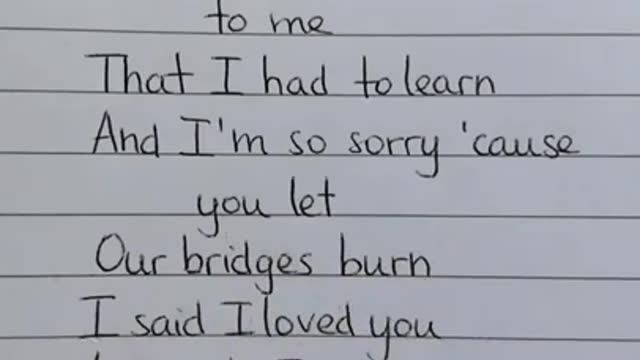 to me
That I had to learn
And I'm so sorry 'cause
you let
Our bridges burn
I said I loved you